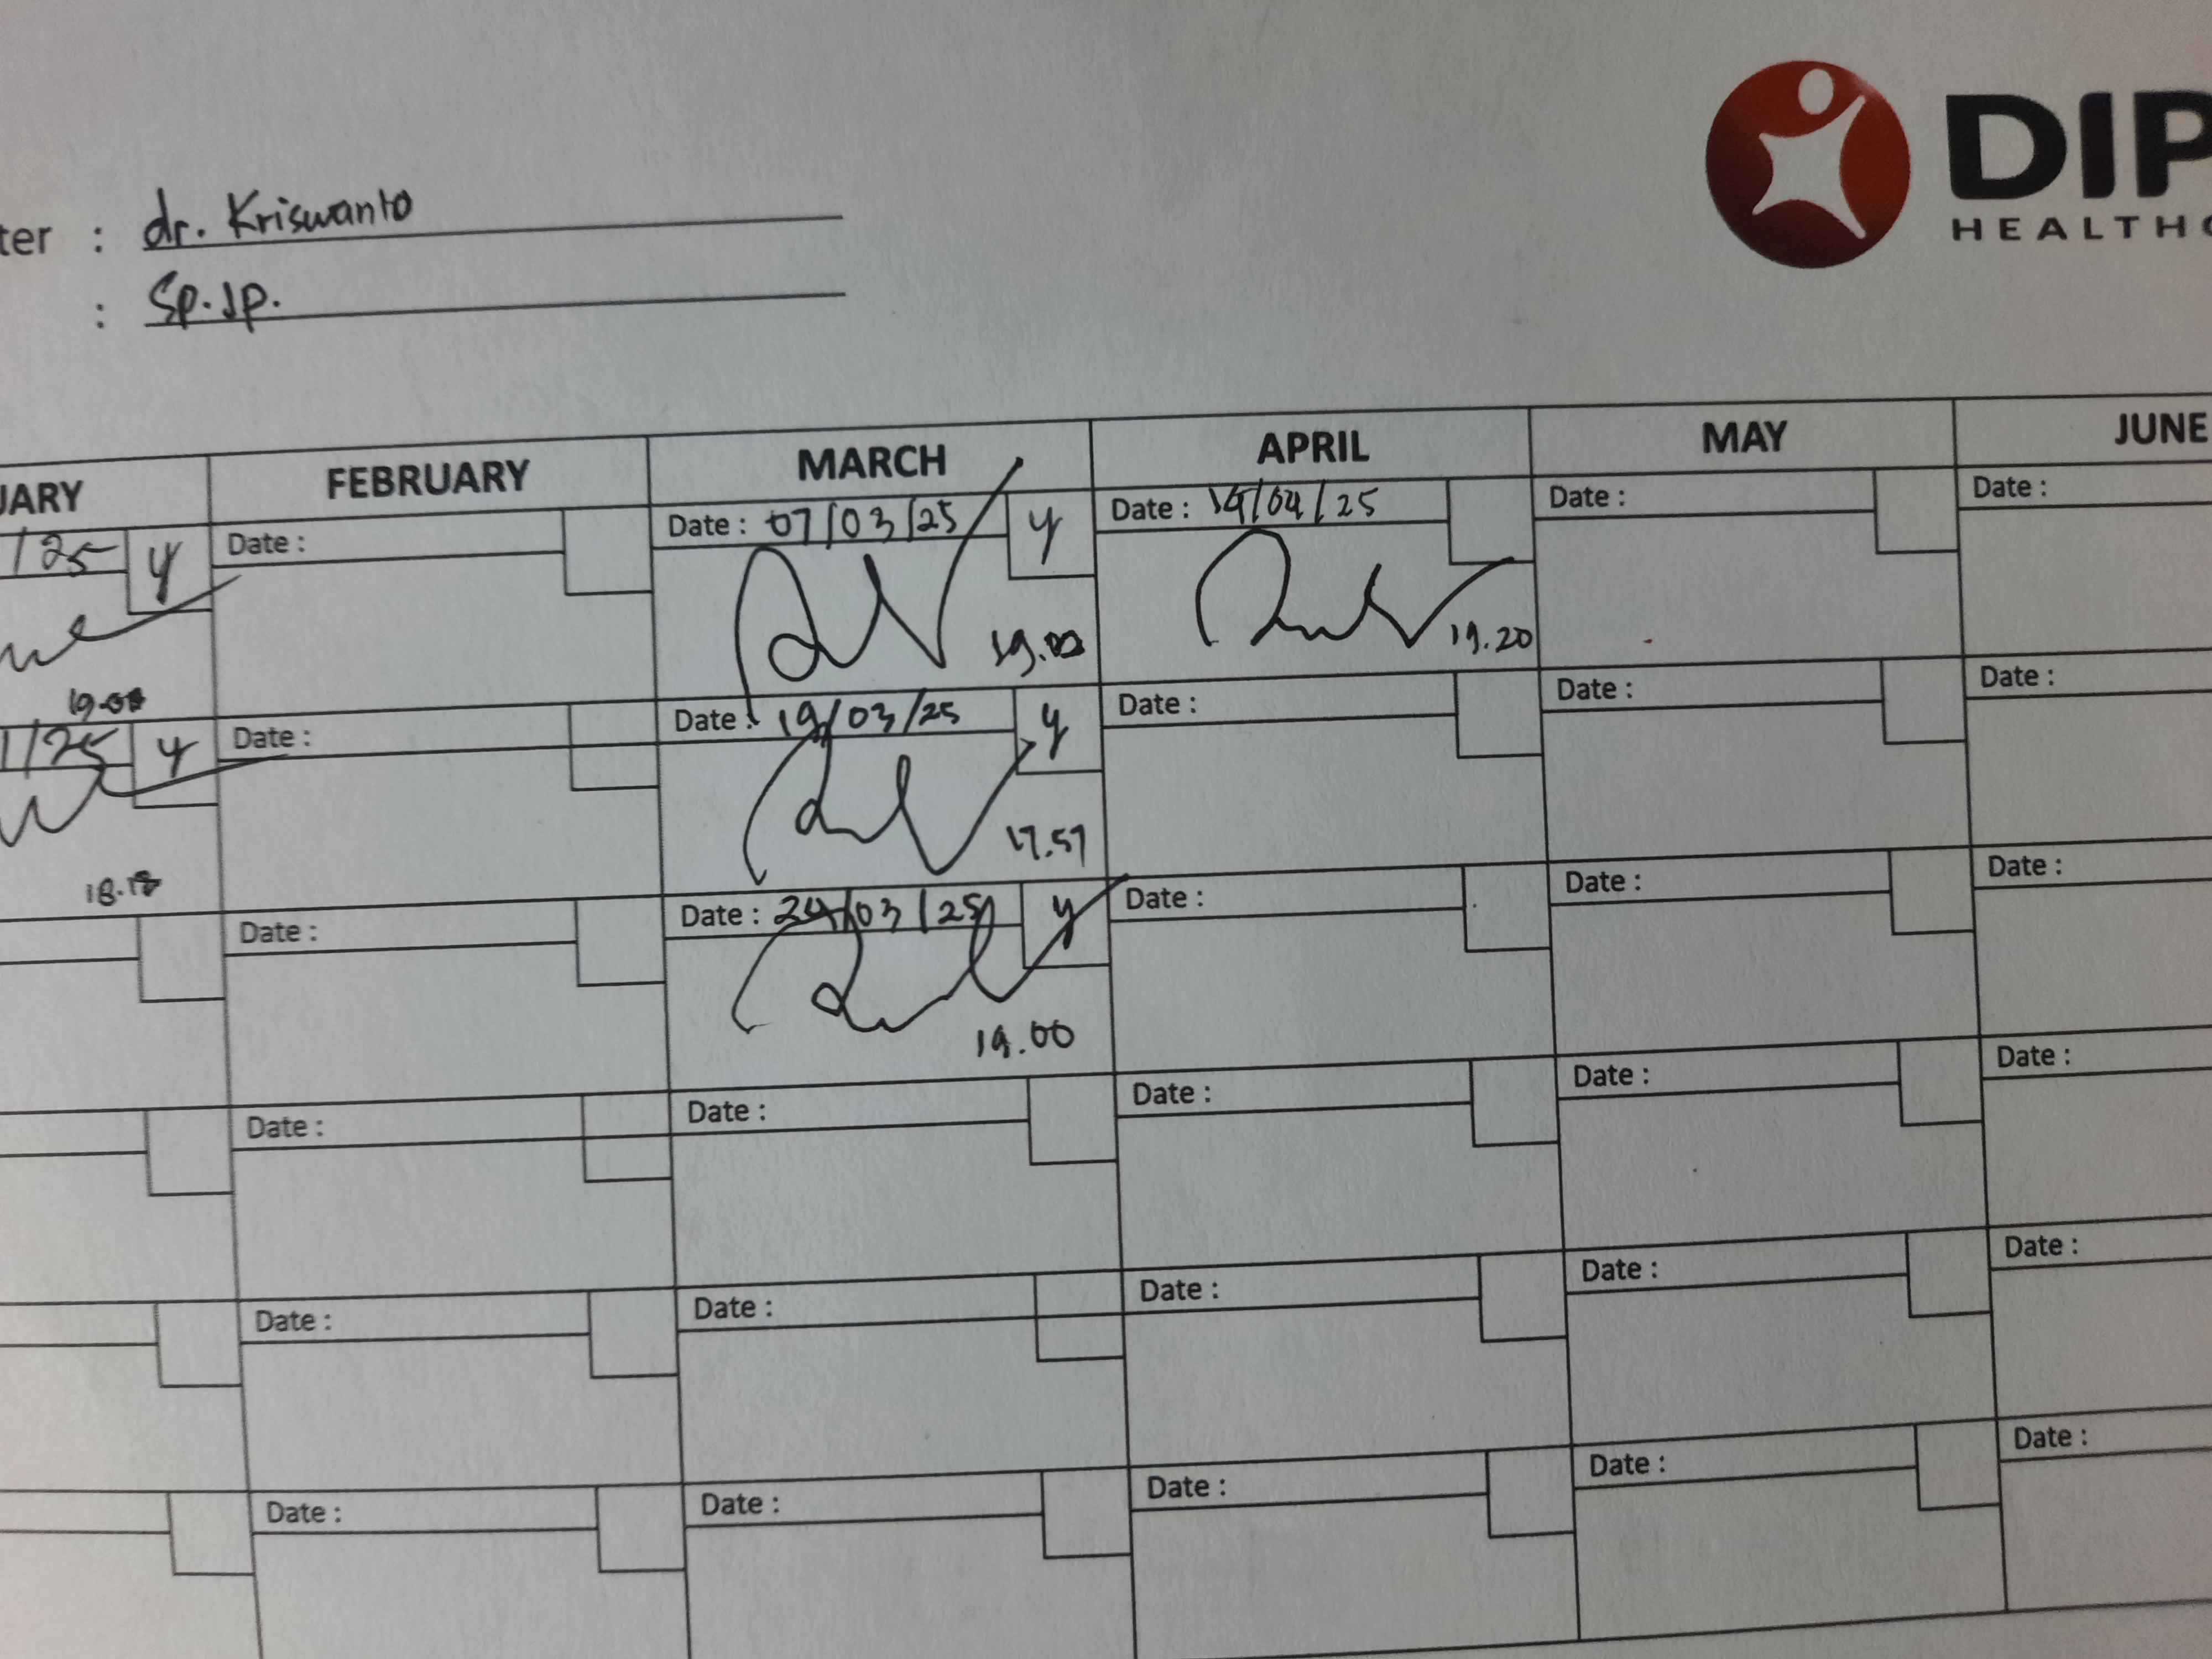 DIP
HEALTHC
ter : dr. Kriswanto
: Sp.Jp.
UARY FEBRUARY MARCH APRIL MAY JUNE
/25 y Date : Date : 07/03/25 y Date : 14/04/25 Date : Date :
19.00 19.20
1/25 y Date : Date : 19/03/25 y Date : Date : Date :
17.57
Date : Date : 24/03/25 y Date : Date : Date :
19.00
Date : Date : Date : Date : Date :
Date : Date : Date : Date : Date :
Date : Date : Date : Date : Date :